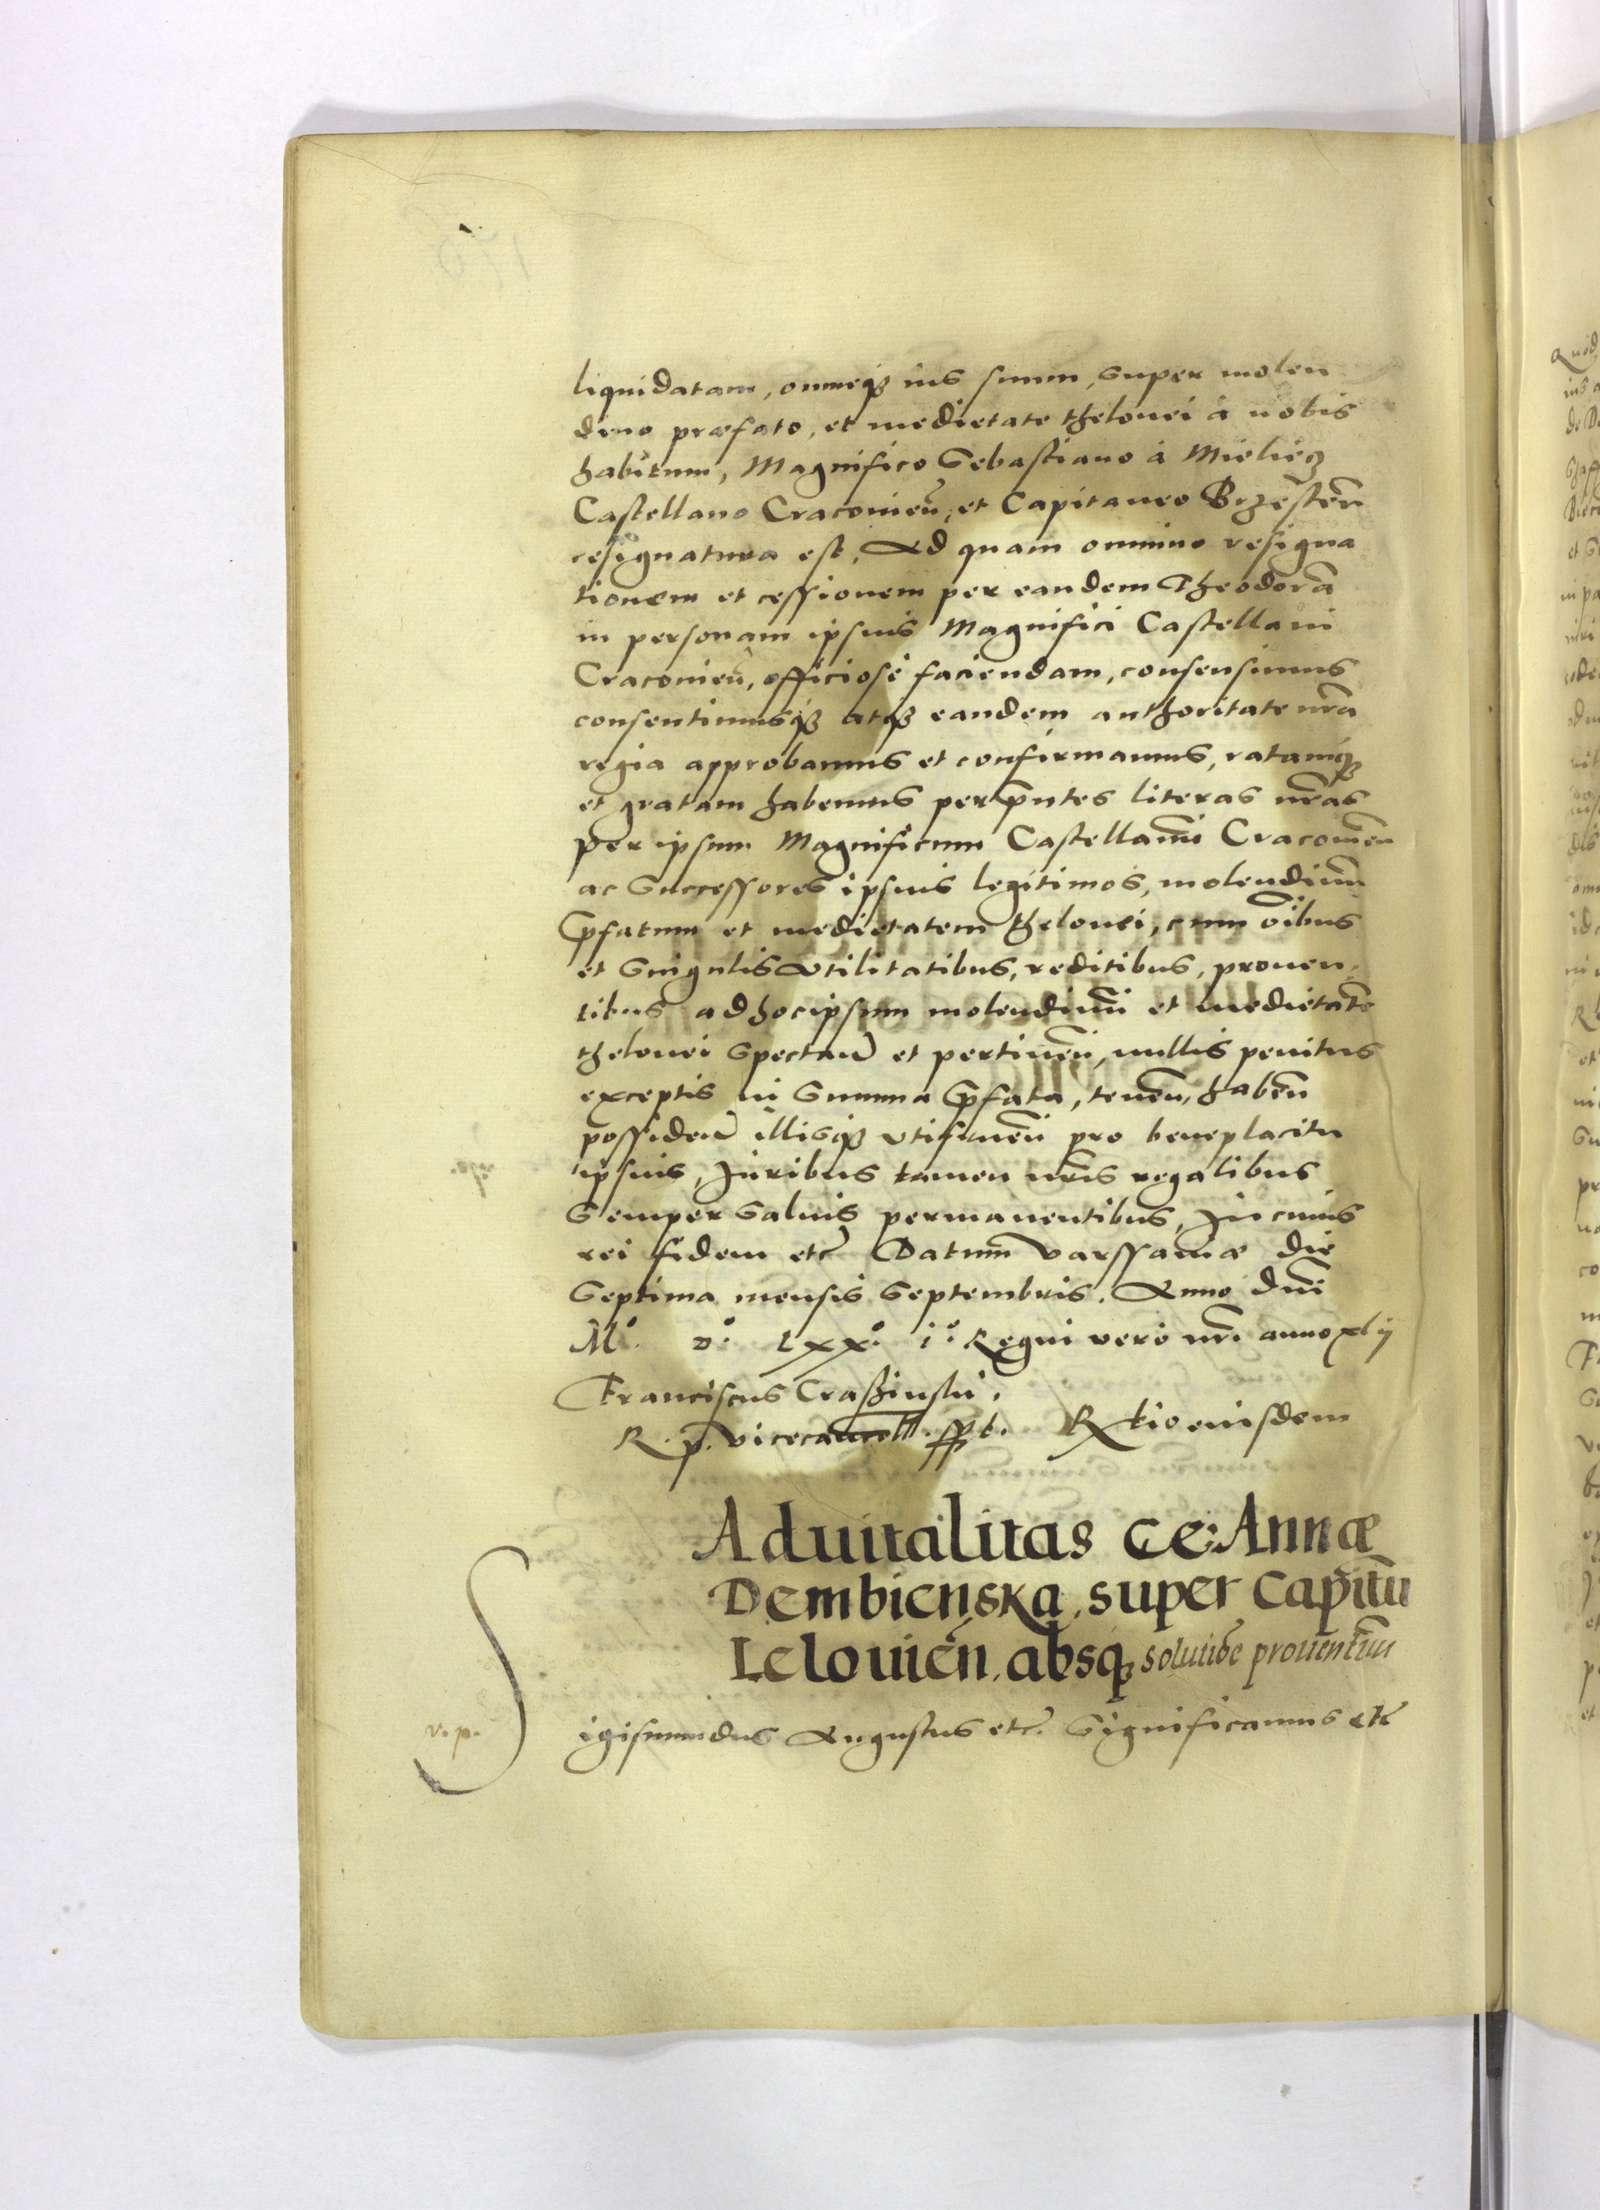 liquidatam, omneqȝ ius suum, super molen
dino præfato, et medietate thelonei à nobis
habitum, Magnifico Sebastiano à Mieliecz
Castellano Cracovieñ, et Capitaneo Brzesteñ
resignatura est, Ad quam omnino resigna
tionem et cessionem per eandem Theodorã
in personam ipsius Magnifici Castellani
Cracovieñ, officiosè faciendam, consensimus
consentimusqȝ atqȝ eandem authoritate nrã
regia approbamus et confirmamus, ratamqȝ
et gratam habemus per p̃ntes literas nr̃as
Per ipsum Magnificum Castellanũ Cracovieñ
ac Successores ipsius legitimos, molendinũ
p̃fatum et medietatem thelonei, cum oĩbus
et Singulis Vtilitatibus, reditibus, proven-
tibus ad hoc ipsum molendinũ et medietatẽ
thelonei Spectañ et pertineñ, nullis penitus
exceptis in Summa p̃fata, teneñ, habeñ
possideñ illisqȝ vtifrueñ pro beneplacitu
ipsius, Juribus tamen nr̃is regalibus
Semper Salvis permanentibus, In cuius
rei fidem etc̃ Datum Varssaviæ die
Septima mensis Septembris. Anno Dñi
Mº. Dº. Lxxº. iº. Regni verò nr̃i anno xlij
Franciscus Craszinski.
R. p. Vicecancell. sspt. Rxtio eiusdem
Aduitalitas Ge: Annæ
Dembienska, super Capitũ
Lelovieñ, absqȝ solutiõe proventũu
v. p.
Sigismundus Augustus etc̃. Significamus etc̃